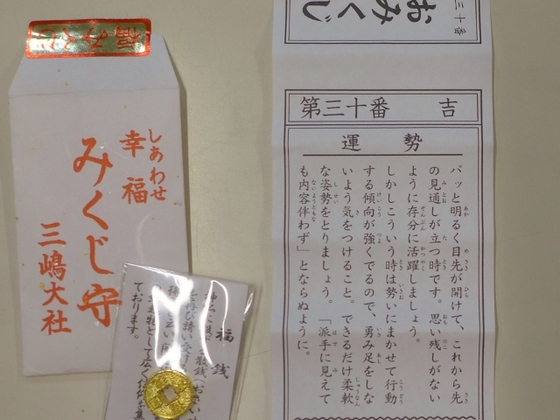 しあわせ
幸福
みくじ守
三嶋大社
福銭
ております。
三十番
おみくじ
第三十番 吉
運勢
パッと明るく目先が開けて、これから先
の見通しが立つ時です。思い残しがない
ように存分に活躍しましょう。
しかしこういう時は勢いにまかせて行動
する傾向が強くでるので、勇み足をしな
いよう気をつけること。できるだけ柔軟
な姿勢をとりましょう。「派手に見えて
も内容伴わず」とならぬように。